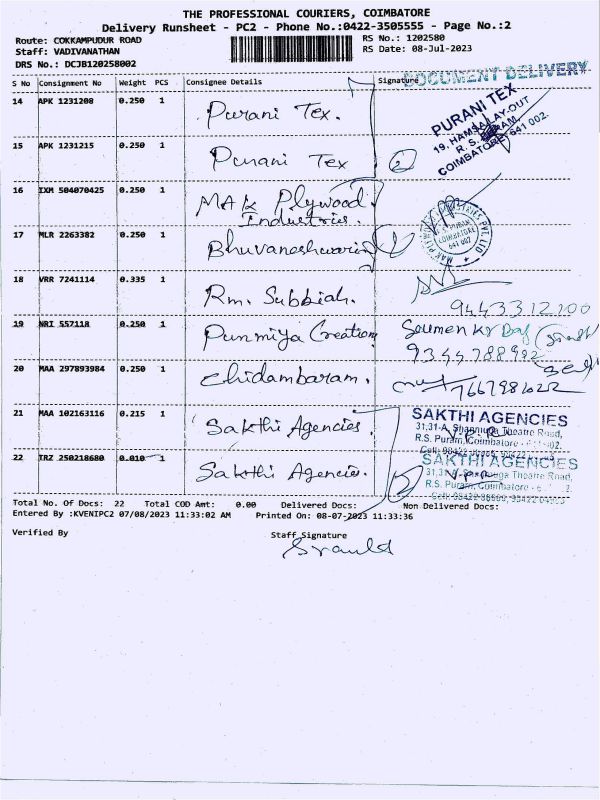 THE PROFESSIONAL COURIERS, COIMBATORE
Delivery Runsheet - PC2 - Phone No.:0422-3505555 - Page No.:2
Route: COKKAMPUDUR ROAD
RS No.: 1202580
Staff: VADIVANATHAN
RS Date: 08-Jul-2023
DRS No.: DCJB120258002
DOCUMENT DELIVERY
S No Consignment No Weight PCS Consignee Details Signature
14 APK 1231208 0.250 1 Purani Tex.
PURANI TEX
19, HAMSA LAY-OUT
R. S. PURAM,
COIMBATORE- 641 002.
15 APK 1231215 0.250 1 Purani Tex 2
16 IXM 504070425 0.250 1 MAK Plywood
Industries.
17 MLR 2263382 0.250 1 Bhuvaneshwari
R.S. PURAM
COIMBATORE
641 002
18 VRR 7241114 0.335 1 Rm. Subbiah.
9443312200
19 NRI 557118 0.250 1 Punmiya Creation
Soumen Kr
9344788982
20 MAA 297893984 0.250 1 Chidambaram.
21 MAA 102163116 0.215 1 Sakthi Agencies.
SAKTHI AGENCIES
31,31-A, Shanmuga Theatre Road,
R.S. Puram, Coimbatore
22 TRZ 250218680 0.010 1 Sakthi Agencies.
2
SAKTHI AGENCIES
Theatre Road,
R.S. Puram, Coimbatore
Total No. Of Docs: 22 Total COD Amt: 0.00 Delivered Docs: Non Delivered Docs:
Entered By :KVENIPC2 07/08/2023 11:33:02 AM Printed On: 08-07-2023 11:33:36
Verified By
Staff Signature